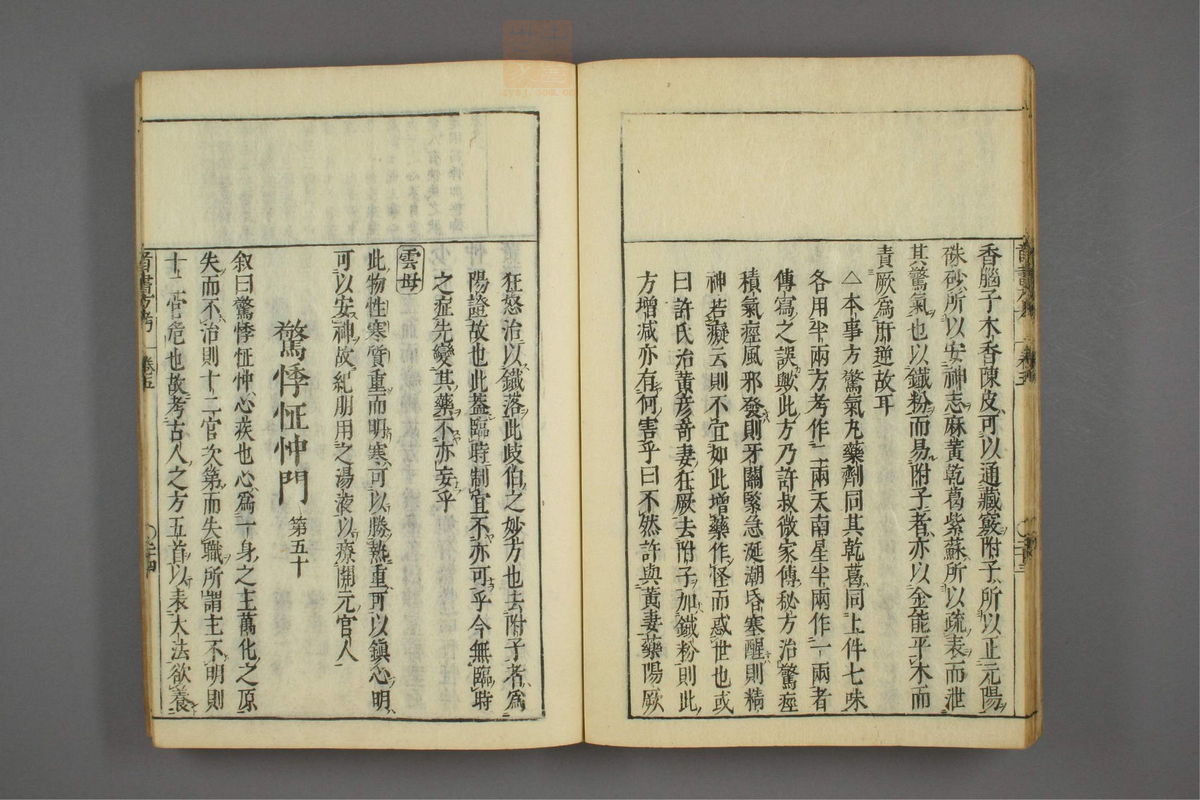 香腦子木香陳皮可以通藏竅附子所以正元陽
硃砂所以安神志麻黃乾葛紫蘇所以疏表而泄
其驚氣也以鐵粉而易附子者亦以金能平木而
責厥為肝逆故耳
△本事方驚氣丸藥劑同其乾葛同上件七味
各用半兩方考作二兩天南星半兩作一兩者
傳寫之誤歟此方乃許叔微家傳秘方治驚痓
積氣痓風邪發則牙關緊急涎潮昏塞醒則精
神若癡云則不宜如此增藥作怪而惑世也或
曰許氏治黃彥奇妻狂厥去附子加鐵粉則此
方增減亦有何害乎曰不然許與黃妻藥陽厥
狂怒治以鐵落此歧伯之妙方也去附子者為
陽證故也此蓋臨時制宜不亦可乎今無臨時
之症先變其藥不亦妄乎
雲母
此物性寒質重而明寒可以勝熱重可以鎮心明
可以安神故紀朋用之湯液以療開元宮人
驚悸怔忡門 第五十
叙曰驚悸怔忡心疾也心為一身之主萬化之原
失而不治則十二官次第而失職所謂主不明則
十二官危也故考古人之方五首以表大法欲養